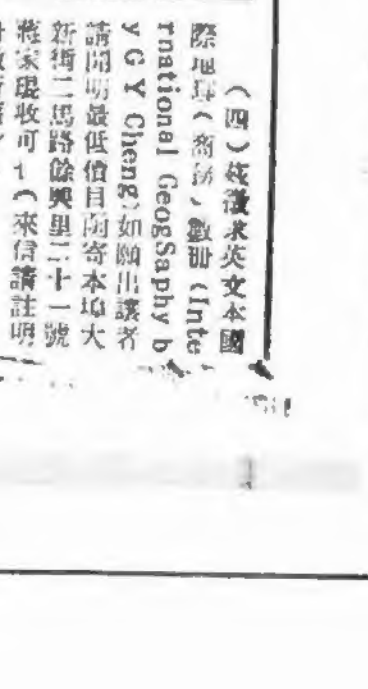 （四）茲徵求英文本國
際地理（商務）數冊（Inte
rnational GeogSaphy b
y G Y Cheng）如願出讓者
請開明最低價目函寄本埠大
新街二馬路餘興里二十一號
蔣家琨收可也（來信請註明